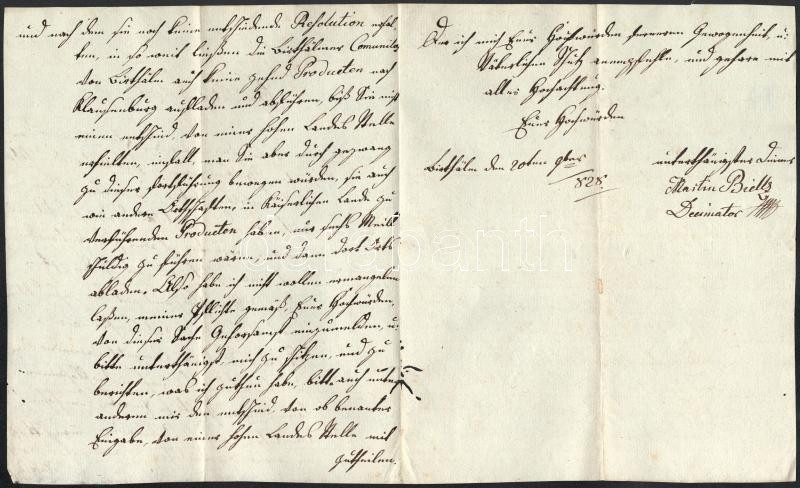 und nach dem sie noch keine entschiedende Resolution erhal
ten, in so weit ließen die Birthälmer Comunitæt
von Birthälm auch keine gehend Producten nach
Klausenburg aufladen und abführen, biß Sie nicht
einen entschied von einer hohen Landes Stelle
erhielten, im fall, man Sie aber durch gezwang
zu dieser fortführung bewegen würden, sie auch
wie andern Ortschaften, im Kaiserlichen Lande zu
verführenden Producten haben, nur sechs Meile
schuldig zu führen wären, und dann dort
abladen. Also habe ich nicht wollen ermangelen
laßen, meiner Pflichte gemäß, Euer Hochwürden,
von dieser Sache Gehorsamst einzumelden, u:
bitte unterthänigst mich zu schützen, und zu
berichten, was ich zuthun habe, bitte auch unter
anderem mir den entschied von ob benanter
Eingabe, von einer hohen Landes Stelle mit
zutheilen.
Der ich mich Euer Hochwürden ferneren Gewogenheit, u:
Väterlichen Schutz anempfehle, und geharre mit
aller Hochachtung.
Euer Hochwürden
Birthälm den 20ten 9ber
828.
unterthänigster Diener
Martin Bieltz
Decimator